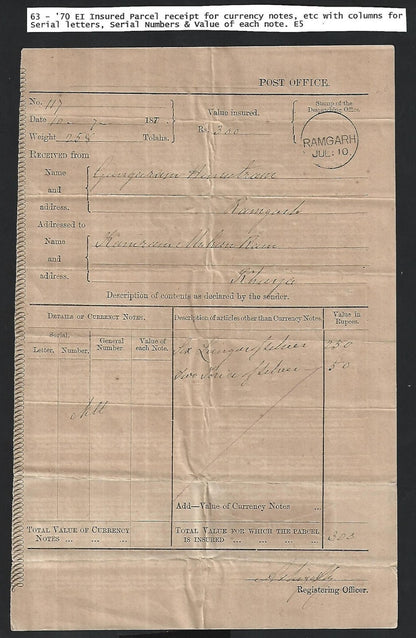 63 - '70 EI Insured Parcel receipt for currency notes, etc with columns for
Serial letters, Serial Numbers & Value of each note. E5
POST OFFICE.
No. 117
Date 10 - 7 - 187
Weight 258 Tolahs.
Value insured.
Rs. 300
Stamp of the
Despatching Office.
RAMGARH
JUL: 10
RECEIVED from
Name
and
address.
Ramgarh
Addressed to
Name
and
address.
Khurja
Description of contents as declared by the sender.
DETAILS OF CURRENCY NOTES.
Serial.
Letter. Number.
General
Number.
Value of
each Note.
Nil
Description of articles other than Currency Notes.
Value in
Rupees.
Six of silver 250
two of silver 50
Add—Value of Currency Notes ...
TOTAL VALUE OF CURRENCY
NOTES ... ... ...
TOTAL VALUE FOR WHICH THE PARCEL
IS INSURED ... ... ... 300
Registering Officer.